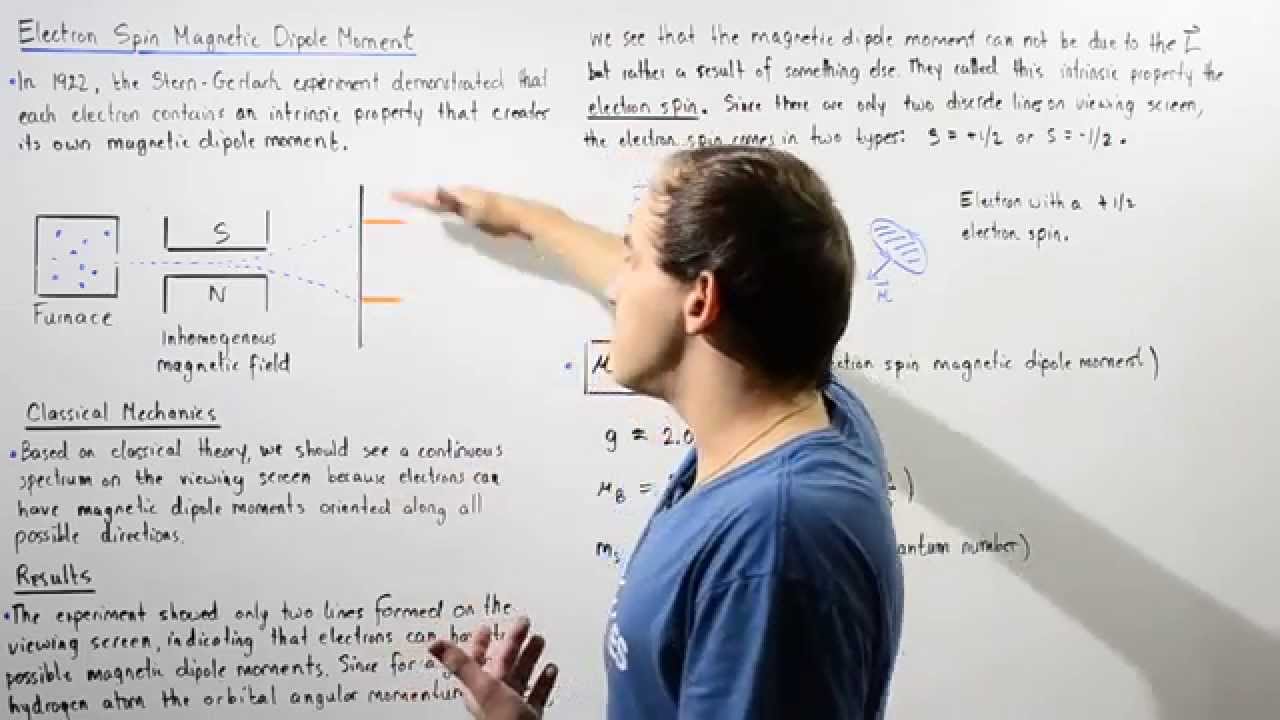 Electron Spin Magnetic Dipole Moment
• In 1922, the Stern-Gerlach experiment demonstrated that
each electron contains an intrinsic property that creates
its own magnetic dipole moment.
S
N
Furnace
Inhomogenous
magnetic field
Classical Mechanics
• Based on classical theory, we should see a continuous
spectrum on the viewing screen because electrons can
have magnetic dipole moments oriented along all
possible directions.
Results
• The experiment showed only two lines formed on the
viewing screen, indicating that electrons can
possible magnetic dipole moments. Since for a
hydrogen atom the orbital angular momentum
we see that the magnetic dipole moment can not be due to the L⃗
but rather a result of something else. They called this intrinsic property the
electron spin. Since there are only two discrete lines on viewing screen,
the electron spin comes in two types: S = +1/2 or S = -1/2.
Electron with a +1/2
electron spin.
μ⃗
• μ spin magnetic dipole moment)
g ≈ 2.0
μB =
ms number)